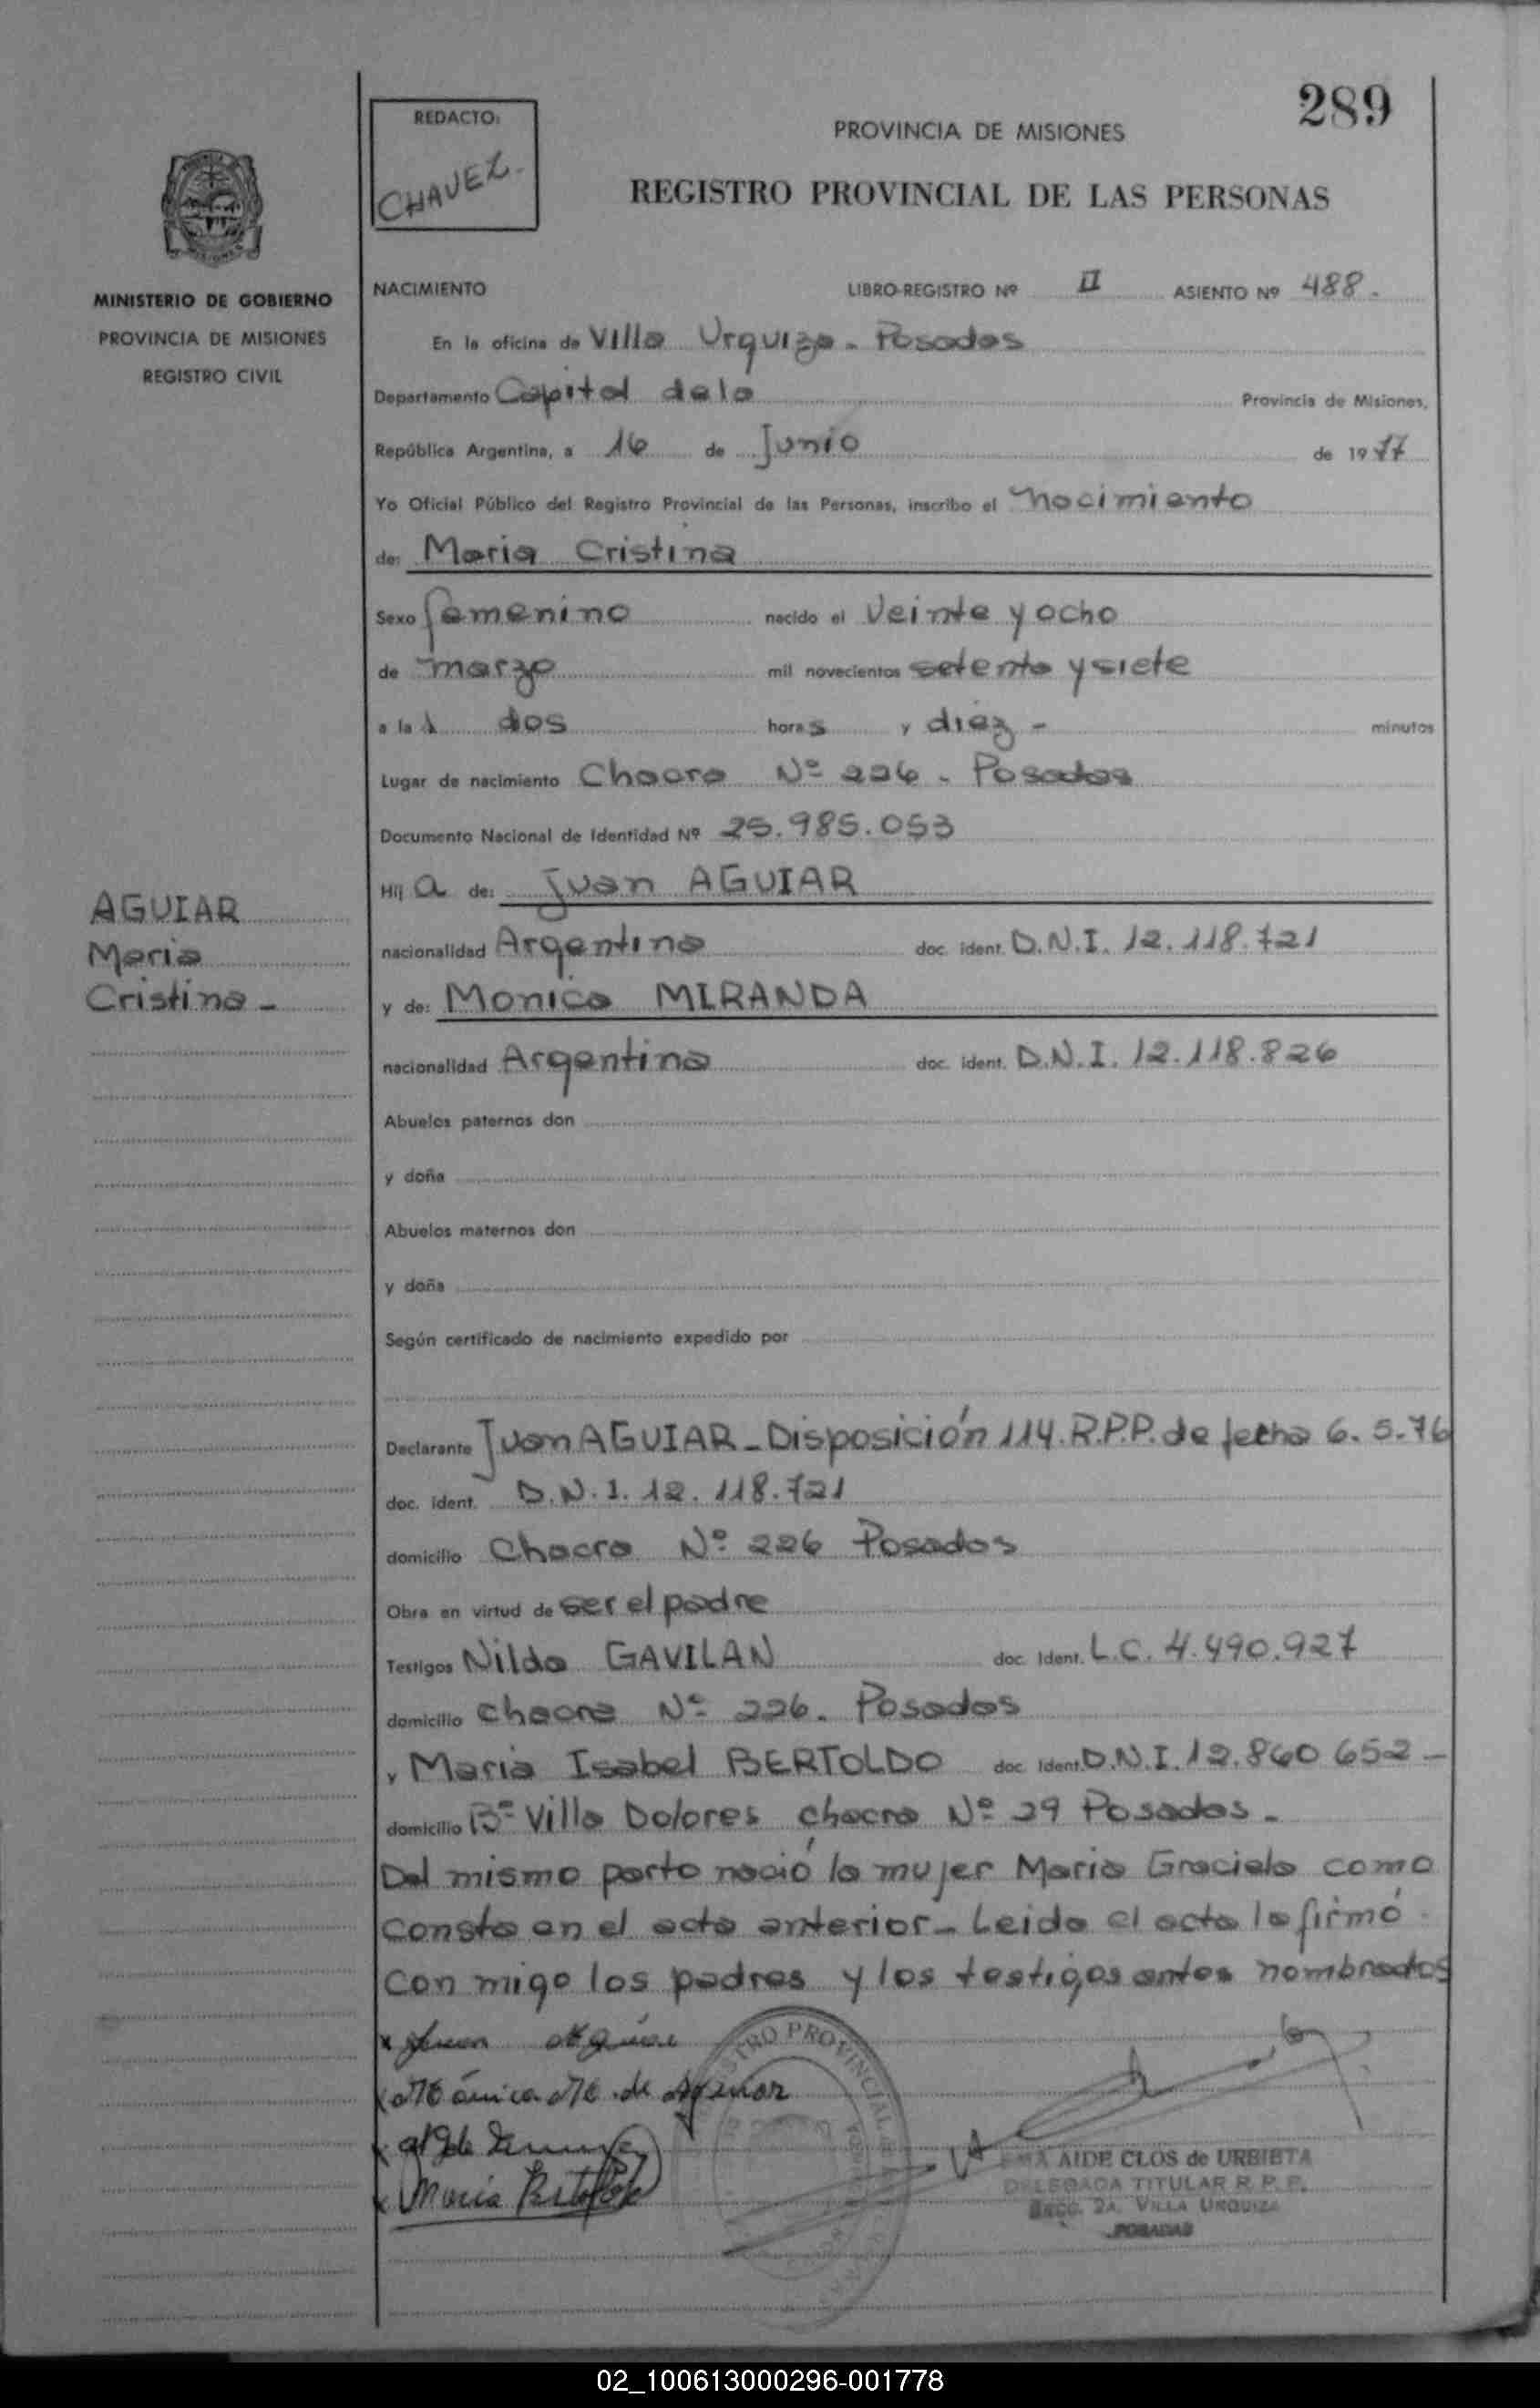 289
REDACTO:
CHAVEZ.
PROVINCIA DE MISIONES
REGISTRO PROVINCIAL DE LAS PERSONAS
MINISTERIO DE GOBIERNO
PROVINCIA DE MISIONES
REGISTRO CIVIL
NACIMIENTO LIBRO-REGISTRO Nº II ASIENTO Nº 488.
En la oficina de Villa Urquiza - Posadas
Departamento Capital de la Provincia de Misiones,
República Argentina, a 16 de Junio de 1977
Yo Oficial Público del Registro Provincial de las Personas, inscribo el nacimiento
de: Maria Cristina
Sexo femenino nacido el Veinte y ocho
de marzo mil novecientos setenta y siete
a las dos horas y diez - minutos
Lugar de nacimiento Chacra Nº 226 - Posadas
Documento Nacional de Identidad Nº 25.985.053
Hija de: Juan AGUIAR
AGUIAR
Maria
Cristina -
nacionalidad Argentina doc. ident. D.N.I. 12.118.721
y de: Monica MIRANDA
nacionalidad Argentina doc. ident. D.N.I. 12.118.826
Abuelos paternos don
y doña
Abuelos maternos don
y doña
Según certificado de nacimiento expedido por
Declarante Juan AGUIAR - Disposición 114. R.P.P. de fecha 6.5.76
doc. ident. D.N.I. 12.118.721
domicilio Chacra Nº 226 Posadas
Obra en virtud de ser el padre
Testigos Nilda GAVILAN doc. Ident. L.C. 4.490.927
domicilio chacra Nº 226. Posadas
y Maria Isabel BERTOLDO doc. Ident. D.N.I. 12.860 652 -
domicilio Bº Villa Dolores chacra Nº 29 Posadas -
Del mismo parto nació la mujer Maria Graciela como
consta en el acta anterior - Leida el acta la firmó
con migo los padres y los testigos antes nombrados
x Juan Aguiar
x Mónica M. de Aguiar
x Maria
AIDE CLOS de URBIETA
DELEGADA TITULAR R. P. P.
SECC. 2A. VILLA URQUIZA
POSADAS
02_100613000296-001778